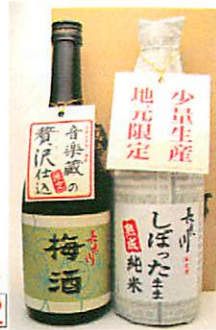 音楽蔵の
限定
贅沢仕込
長良川
梅酒
少量生産
地元限定
長良川
しぼったまま
熟成
純米